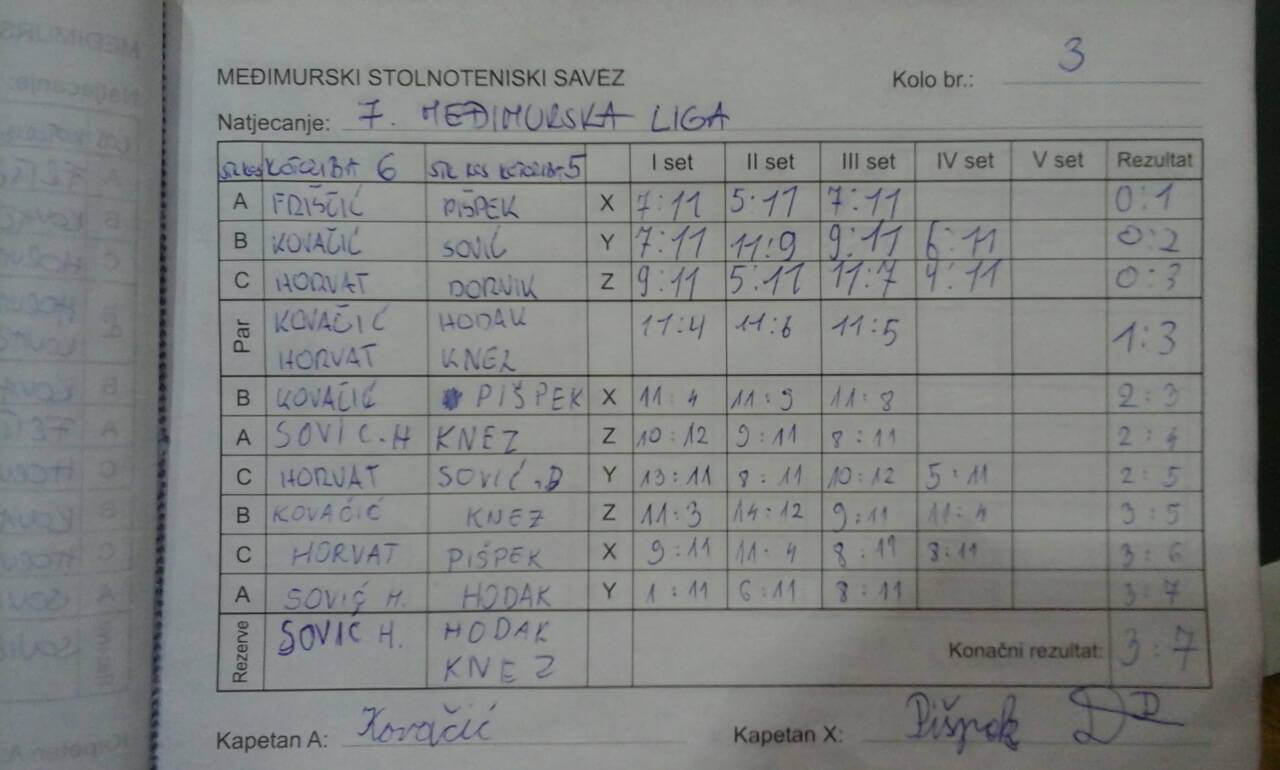 MEĐIMURSKI STOLNOTENISKI SAVEZ Kolo br.: 3
Natjecanje: 7. MEĐIMURSKA LIGA
KOTORIBA 6 STK KOS KOTORIBA 5 I set II set III set IV set V set Rezultat
A FRIŠČIĆ PIŠPEK X 7:11 5:11 7:11 0:1
B KOVAČIĆ SOVIĆ Y 7:11 11:9 9:11 6:11 0:2
C HORVAT DORNIK Z 9:11 5:11 11:7 4:11 0:3
Par KOVAČIĆ HODAK 11:4 11:6 11:5 1:3
HORVAT KNEZ
B KOVAČIĆ PIŠPEK X 11:4 11:9 11:8 2:3
A SOVIĆ.H KNEZ Z 10:12 9:11 8:11 2:4
C HORVAT SOVIĆ.D Y 13:11 8:11 10:12 5:11 2:5
B KOVAČIĆ KNEZ Z 11:3 14:12 9:11 11:4 3:5
C HORVAT PIŠPEK X 9:11 11:4 8:11 8:11 3:6
A SOVIĆ H. HODAK Y 1:11 6:11 8:11 3:7
Rezerve SOVIĆ H. HODAK Konačni rezultat: 3:7
KNEZ
Kapetan A: Kovačić Kapetan X: Pišpek